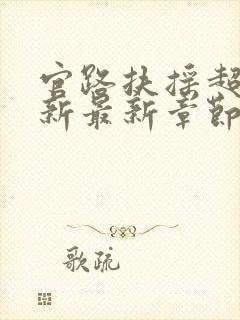 官路扶摇超
新最新章节
歌疏